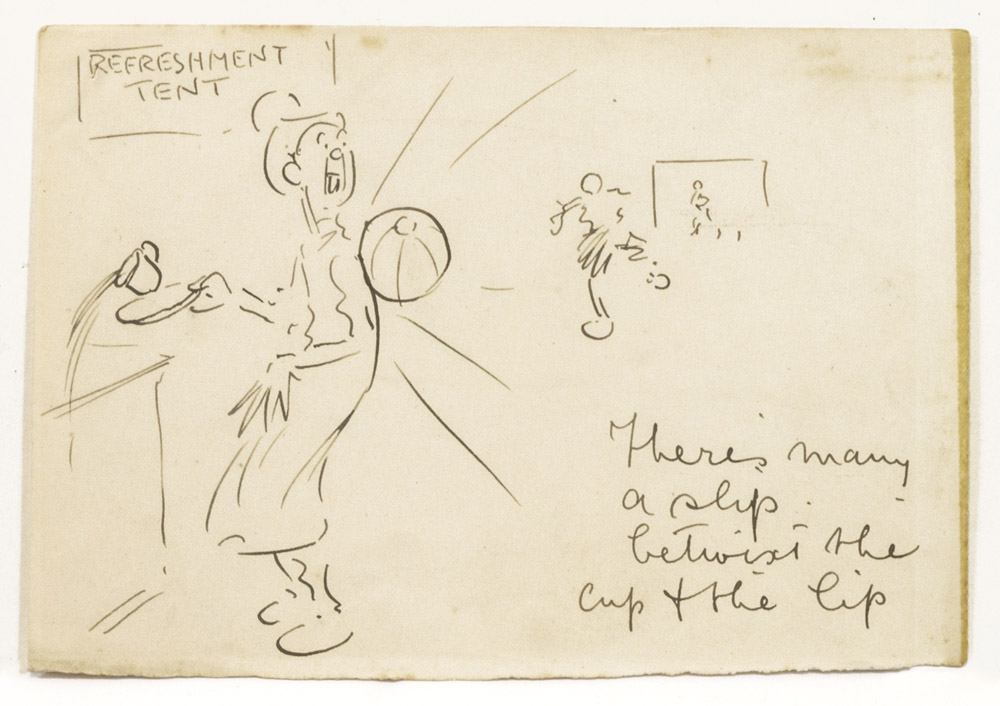 REFRESHMENT
TENT
There's many
a slip
betwixt the
cup & the lip